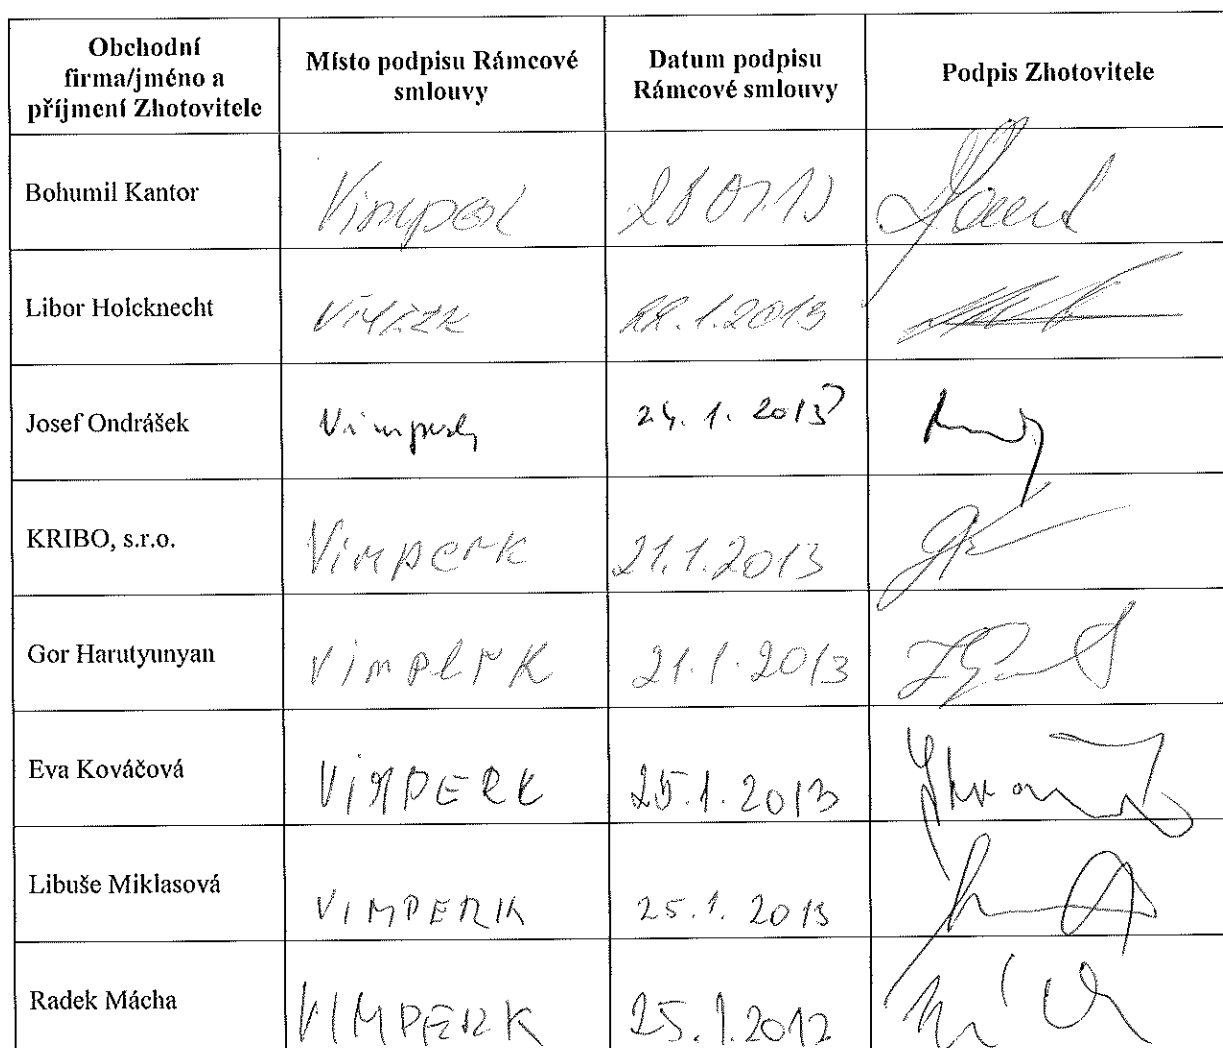 Obchodní
firma/jméno a
příjmení Zhotovitele
Místo podpisu Rámcové
smlouvy
Datum podpisu
Rámcové smlouvy
Podpis Zhotovitele
Bohumil Kantor
Libor Holcknecht 22.1.2013
Josef Ondrášek Vimperk 24. 1. 2013
KRIBO, s.r.o. Vimperk 21.1.2013
Gor Harutyunyan Vimperk 21.1.2013
Eva Kováčová VIMPERK 25.1.2013
Libuše Miklasová VIMPERK 25.1. 2013
Radek Mácha VIMPERK 25.1.2012